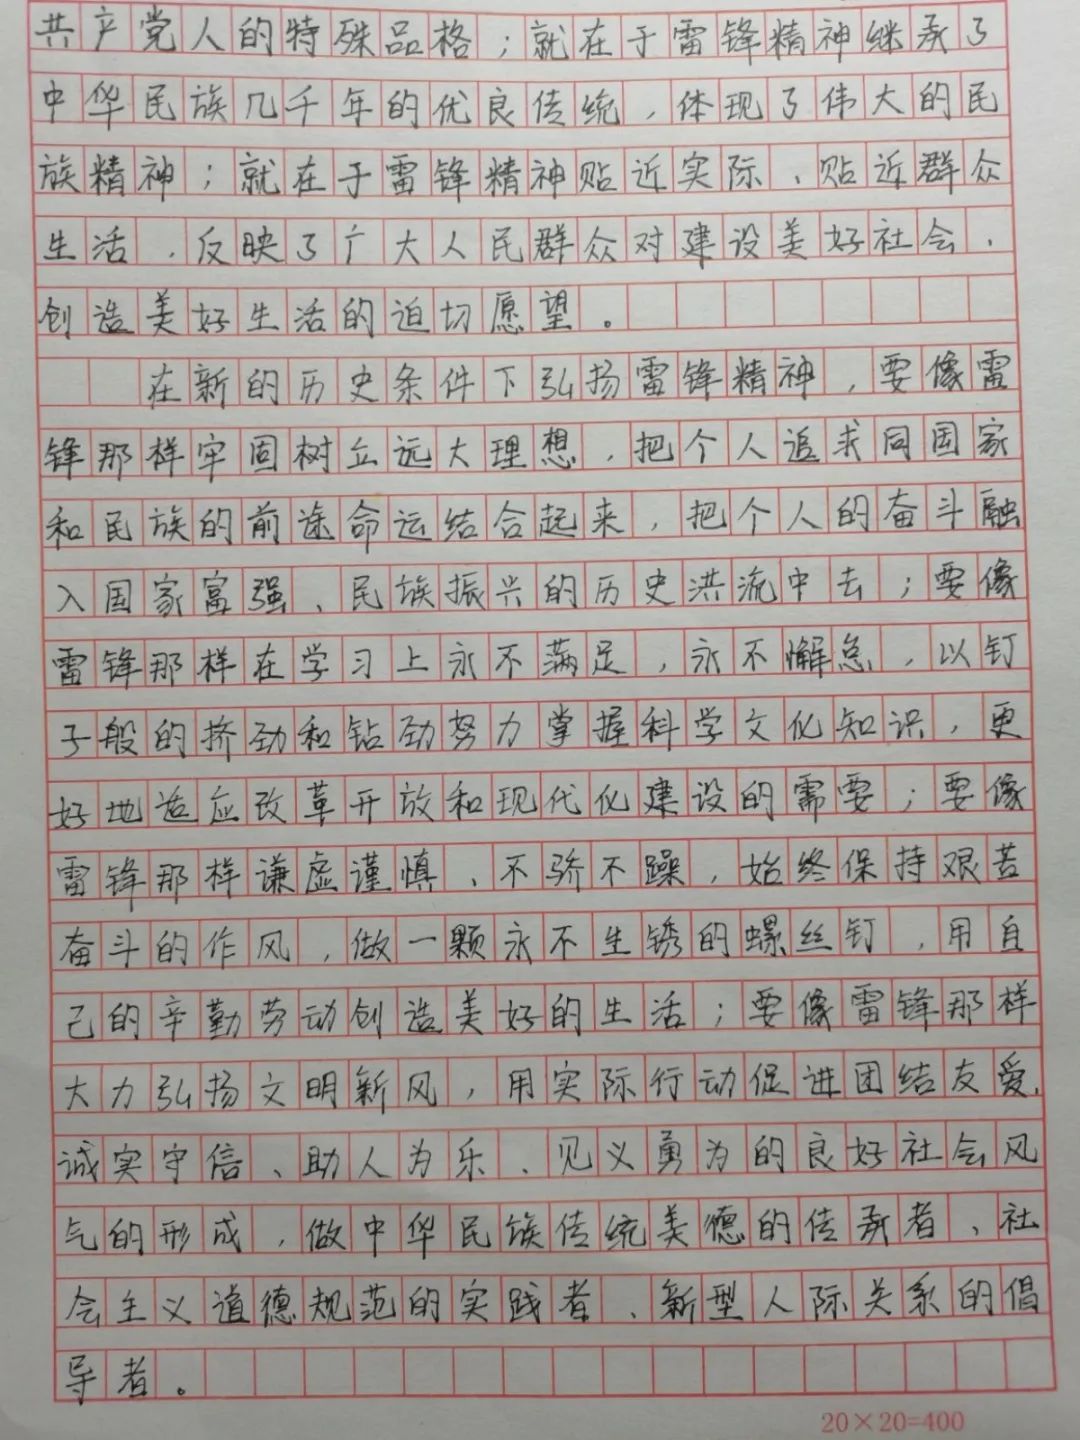 共产党人的特殊品格；就在于雷锋精神继承了
中华民族几千年的优良传统，体现了伟大的民
族精神；就在于雷锋精神贴近实际、贴近群众
生活，反映了广大人民群众对建设美好社会、
创造美好生活的迫切愿望。
在新的历史条件下弘扬雷锋精神，要像雷
锋那样牢固树立远大理想，把个人追求同国家
和民族的前途命运结合起来，把个人的奋斗融
入国家富强、民族振兴的历史洪流中去；要像
雷锋那样在学习上永不满足，永不懈怠，以钉
子般的挤劲和钻劲努力掌握科学文化知识，更
好地适应改革开放和现代化建设的需要；要像
雷锋那样谦虚谨慎、不骄不躁，始终保持艰苦
奋斗的作风，做一颗永不生锈的螺丝钉，用自
己的辛勤劳动创造美好的生活；要像雷锋那样
大力弘扬文明新风，用实际行动促进团结友爱、
诚实守信、助人为乐、见义勇为的良好社会风
气的形成，做中华民族传统美德的传承者、社
会主义道德规范的实践者、新型人际关系的倡
导者。
20×20=400